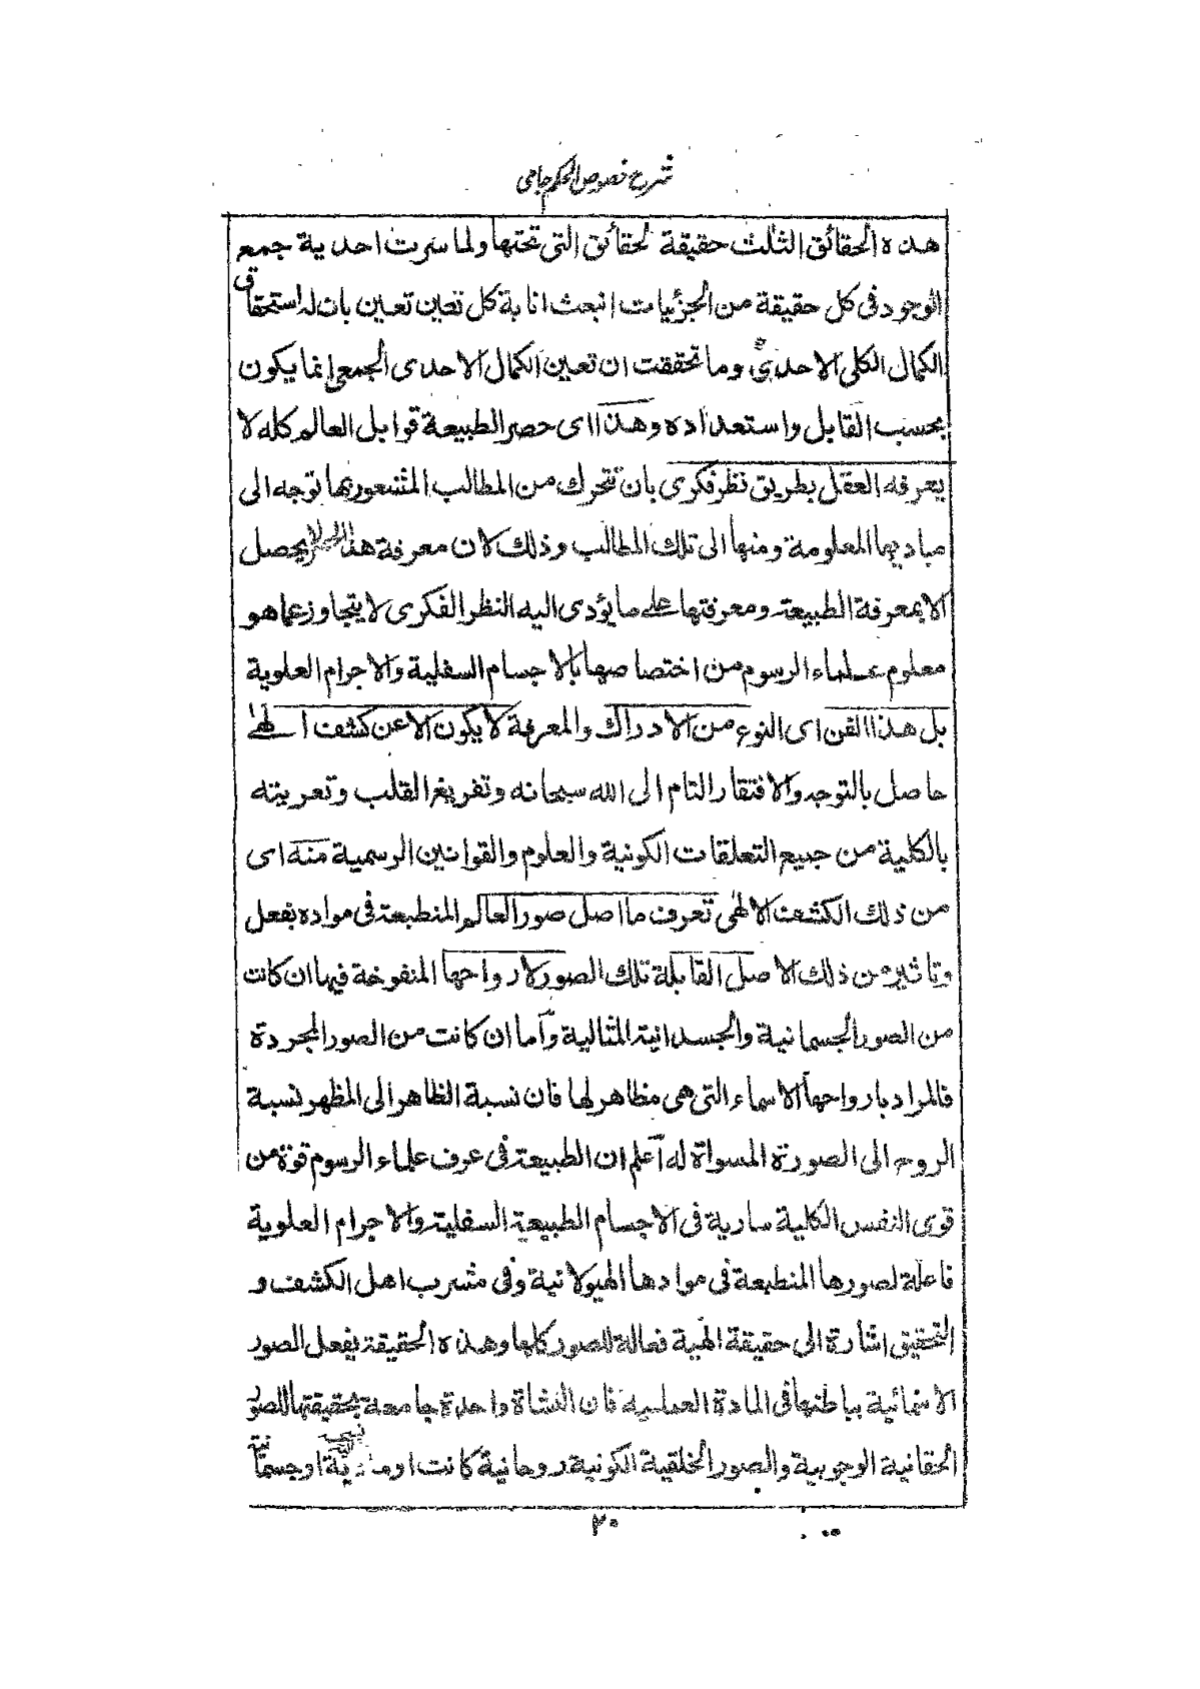 شرح فصوص الحكم جامى
هذه الحقائق الثلث حقيقة لحقائق التى تحتها ولما سرت احدية جمع
الوجود فى كل حقيقة من الجزئيات انبعث انابة كل تعين تعين بان له استحقاق
الكمال الكلى الاحدى وما تحققت ان تعين الكمال الاحدى الجمعى انما يكون
بحسب القابل واستعداده وهذا اى حصر الطبيعة قوابل العالم كله لا
يعرفه العقل بطريق نظر فكرى بان تتحرك من المطالب المشعور بها توجه الى
مباديها المعلومة ومنها الى تلك المطالب وذلك لان معرفة هذا الحصر لا يحصل
الا بمعرفة الطبيعة ومعرفتها على ما يؤدى اليه النظر الفكرى لا يتجاوز عما هو
معلوم علماء الرسوم من اختصاصها بالاجسام السفلية والاجرام العلوية
بل هذا الفن اى النوع من الادراك والمعرفة لا يكون الا عن كشف الهٰى
حاصل بالتوجه والافتقار التام الى الله سبحانه وتفريغ القلب وتعريته
بالكلية من جميع التعلقات الكونية والعلوم والقوانين الرسمية منه اى
من ذلك الكشف الالهٰى تعرف ما اصل صور العالم المنطبعة فى مواده بفعل
وتاثير من ذلك الاصل القابلة تلك الصور لارواحها المنفوخة فيها ان كانت
من الصور الجسمانية والجسدانية المثالية وآما ان كانت من الصور المجردة
فالمراد بارواحها الاسماء التى هى مظاهر لها فان نسبة الظاهر الى المظهر نسبة
الروح الى الصورة المسواة له آعلم ان الطبيعة فى عرف علماء الرسوم قوة من
قوى النفس الكلية سارية فى الاجسام الطبيعية السفلية والاجرام العلوية
فاعلة لصورها المنطبعة فى موادها الهيولانية وفى مشرب اهل الكشف و
التحقيق اشارة الى حقيقة الهية فعالة للصور كلها وهذه الحقيقة يفعل الصور
الاسمائية بباطنها فى المادة العمائية فان النشاة واحدة جامعة بحقيقتها للصور
الحقانية الوجوبية والصور الخلقية الكونية روحانية كانت او مثالية او جسمانية
٢٠